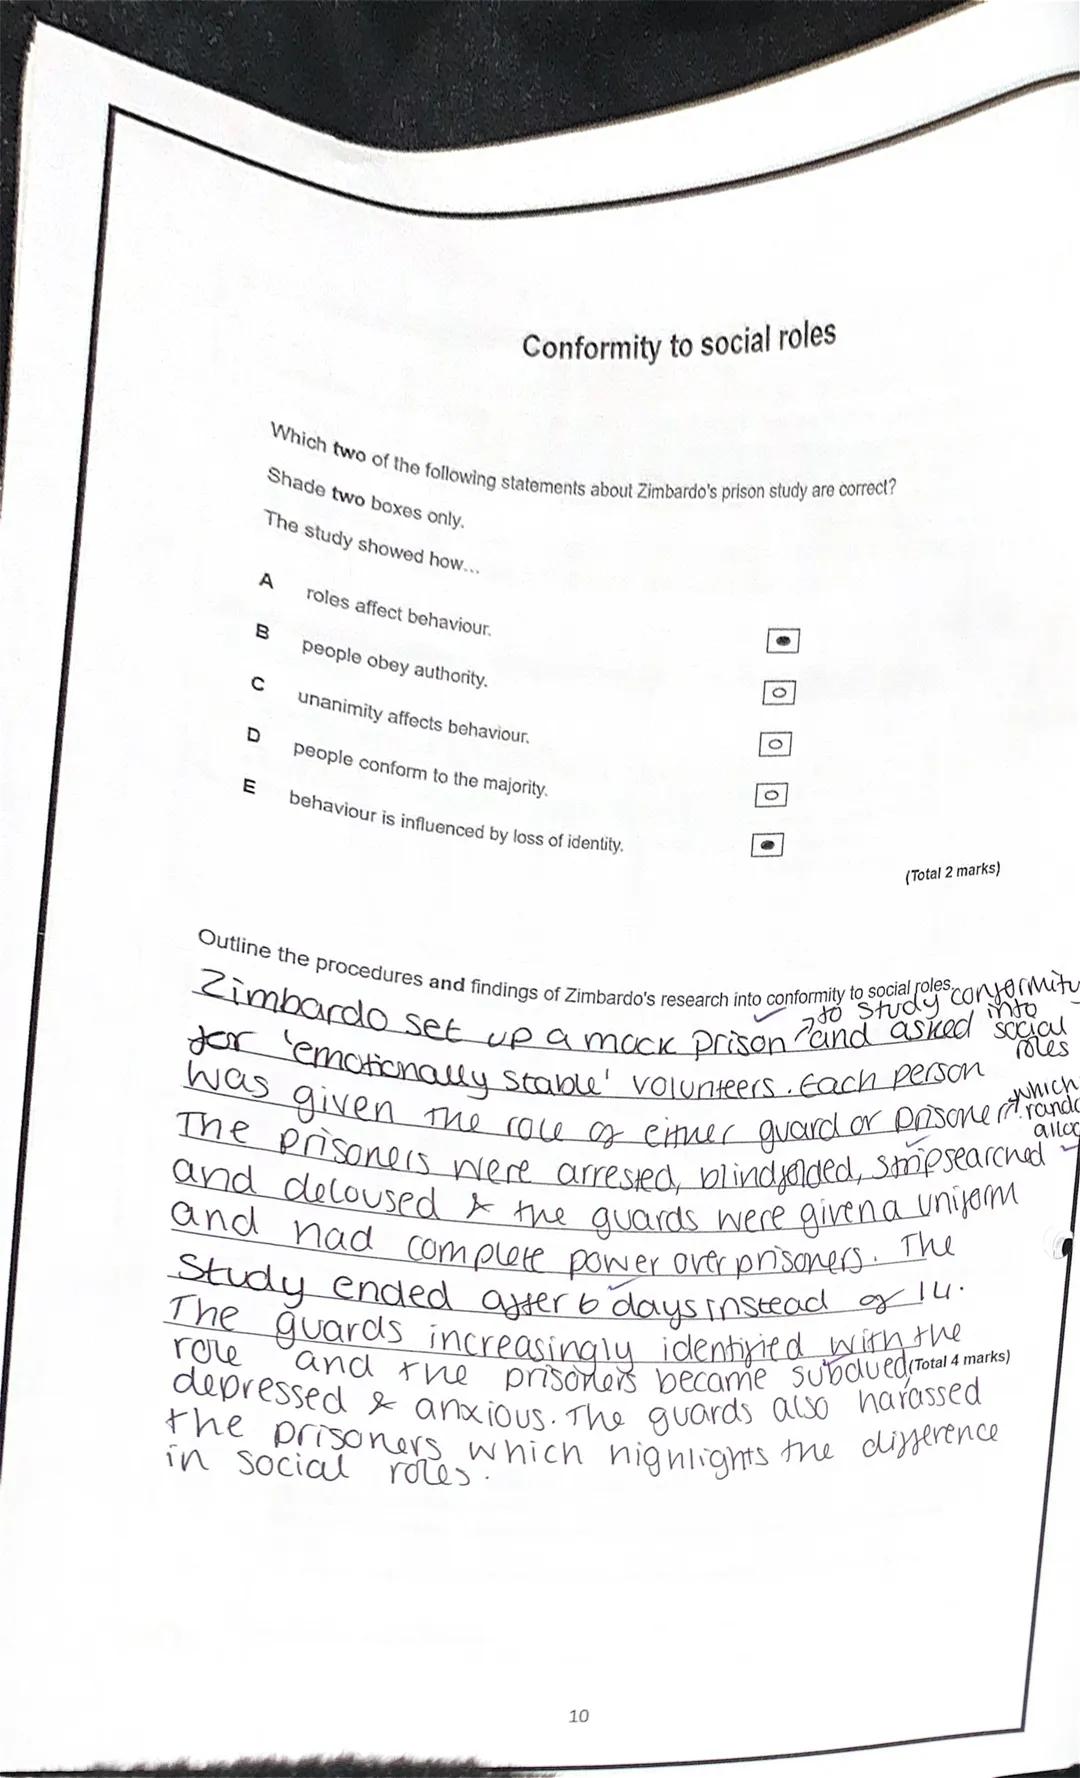 Conformity to social roles
Which two of the following statements about Zimbardo's prison study are correct?
Shade two boxes only.
The study showed how...
A roles affect behaviour.
B people obey authority.
C unanimity affects behaviour.
D people conform to the majority.
E behaviour is influenced by loss of identity.
(Total 2 marks)
Outline the procedures and findings of Zimbardo's research into conformity to social roles.
to study conformity
into social roles
Zimbardo set up a mock prison and asked
for 'emotionally stable' volunteers. Each person
was given the role of either guard or prisoner. which
The prisoners were arrested, blindfolded, stripsearched
and deloused & the guards were given a uniform
and had complete power over prisoners. The
study ended after 6 days instead of 14.
The guards increasingly identified with the
role and the prisoners became subdued, (Total 4 marks)
depressed & anxious. The guards also harassed
the prisoners which highlights the difference
in social roles.
10